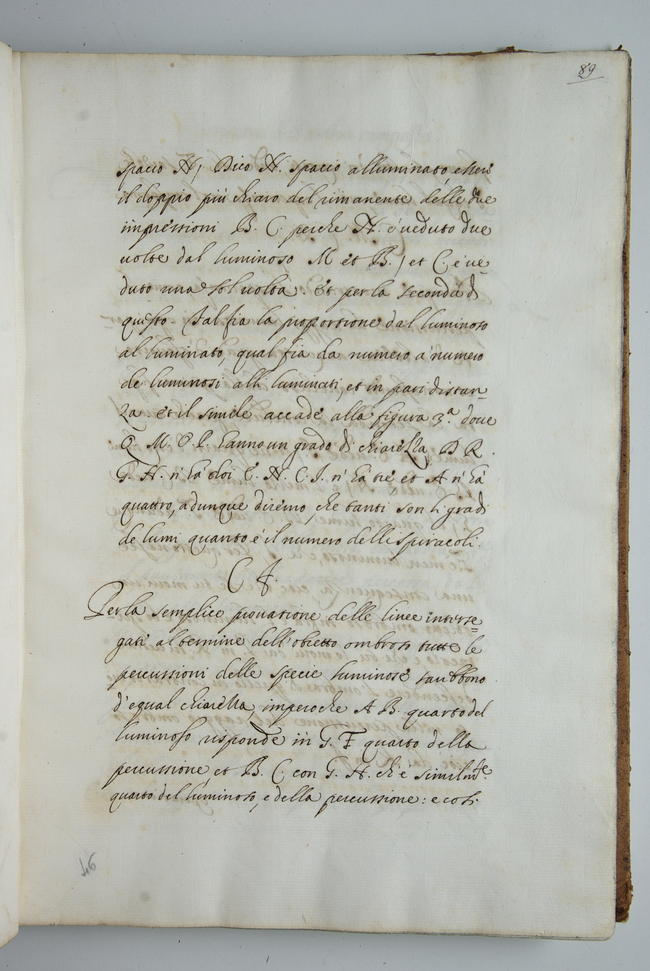 89
spacio N, Dico N. spacio alluminato essere
il doppio più chiaro del rimanente delle due
impressioni B. C. perche N. è ueduto due
uolte dal luminoso M et B. / et C. è ue-
duto una sol uolta. Et per la seconda di
questo. Tal fia la proportione dal luminoso
al luminato, qual fia da numero a numero
de luminosi alli luminati, et in pari distan-
za. et il simile accade alla figura 3.ª doue
Q. M. O. P. hanno un grado di chiarezza D R.
G. H. n'ha doi E. N. C. I. n'ha tre, et A n'ha
quattro, adunque diremo, che tanti son li gradi
de lumi quanto è il numero delli spiracoli.
C
Per la semplice prouatione delle linee interse-
gati al termine dell'obietto ombroso tutte le
percussioni delle specie luminose sarebbono
d'egual chiarezza, imperoche A B. quarto del
luminoso risponde in G. F quarto della
percussione et B. C. con G. H. ch'è similmte
quarto del luminoso, e della percussione: e cosi
46